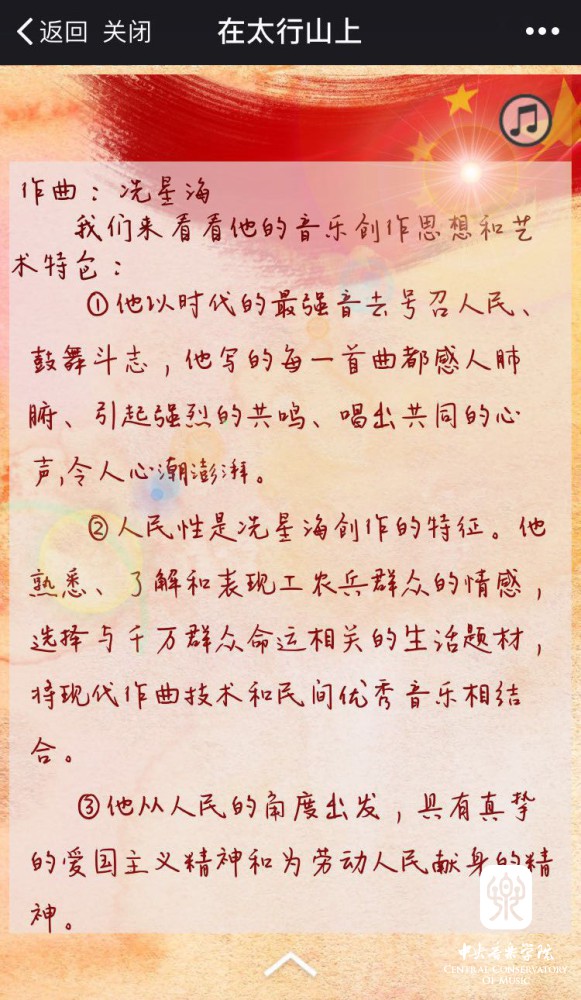 返回 关闭 在太行山上
作曲：冼星海
我们来看看他的音乐创作思想和艺
术特色：
①他以时代的最强音去号召人民、
鼓舞斗志，他写的每一首曲都感人肺
腑、引起强烈的共鸣、唱出共同的心
声,令人心潮澎湃。
②人民性是冼星海创作的特征。他
熟悉、了解和表现工农兵群众的情感，
选择与千万群众命运相关的生活题材，
将现代作曲技术和民间优秀音乐相结
合。
③他从人民的角度出发，具有真挚
的爱国主义精神和为劳动人民献身的精
神。
中央音乐学院
CENTRAL CONSERVATORY
OF MUSIC